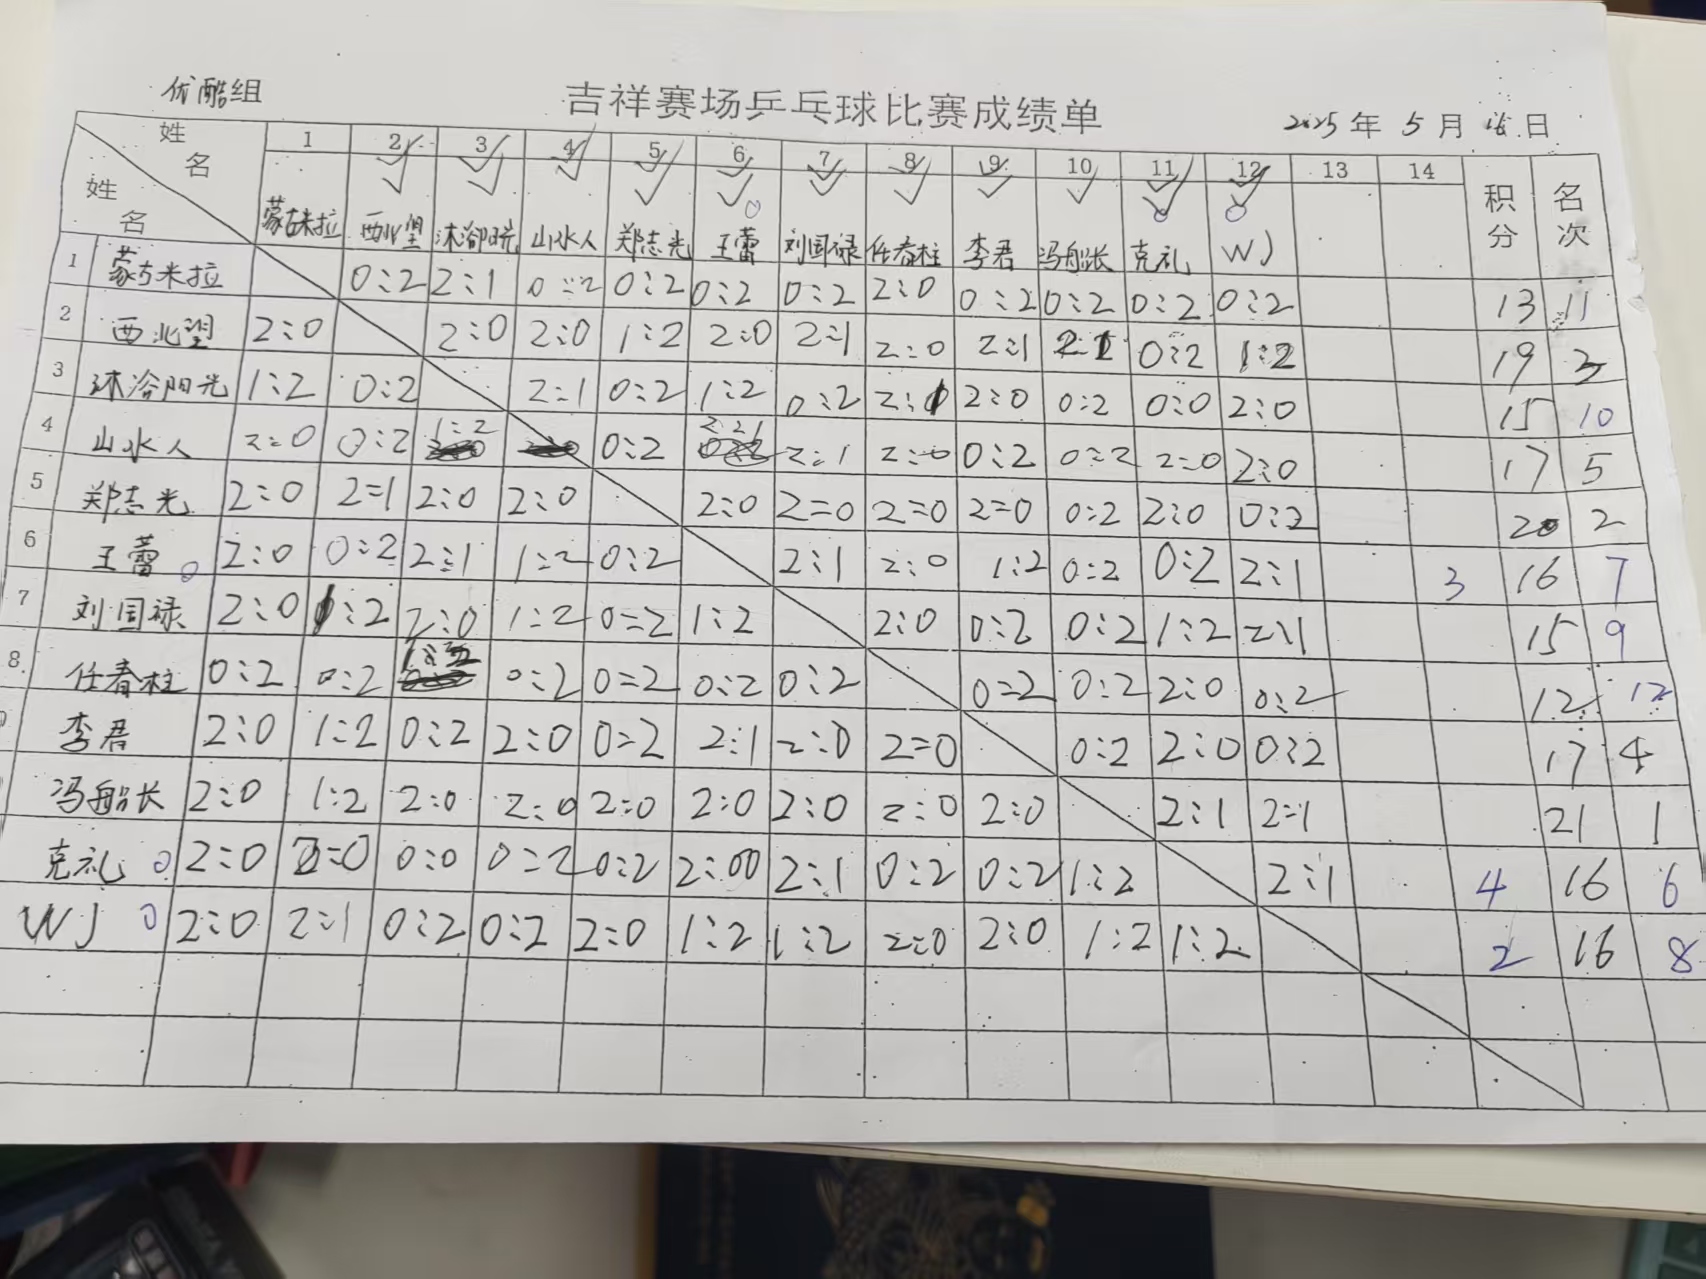 优酷组 吉祥赛场乒乓球比赛成绩单 2025年5月 日
姓名 1 2 3 4 5 6 7 8 9 10 11 12 13 14 积分 名次
姓名 蒙古米拉 西北望 沐浴阳光 山水人 郑志光 王蕾 0 刘国禄 任春柱 李君 冯船长 克礼 0 WJ 0
1 蒙古米拉 0:2 2:1 0:2 0:2 0:2 0:2 2:0 0:2 0:2 0:2 0:2 13 11
2 西北望 2:0 2:0 2:0 1:2 2:0 2:1 2:0 2:1 2:1 0:2 1:2 19 3
3 沐浴阳光 1:2 0:2 2:1 0:2 1:2 0:2 2:1 2:0 0:2 0:0 2:0 15 10
4 山水人 2:0 0:2 1:2 0:2 2:1 2:1 2:0 0:2 0:2 2:0 2:0 17 5
5 郑志光 2:0 2:1 2:0 2:0 2:0 2:0 2:0 2:0 0:2 2:0 0:2 20 2
6 王蕾 0 2:0 0:2 2:1 1:2 0:2 2:1 2:0 1:2 0:2 0:2 2:1 3 16 7
7 刘国禄 2:0 1:2 2:0 1:2 0:2 1:2 2:0 0:2 0:2 1:2 2:1 15 9
8 任春柱 0:2 0:2 1:2 0:2 0:2 0:2 0:2 0:2 0:2 2:0 0:2 12 12
李君 2:0 1:2 0:2 2:0 0:2 2:1 2:0 2:0 0:2 2:0 0:2 17 4
冯船长 2:0 1:2 2:0 2:0 2:0 2:0 2:0 2:0 2:0 2:1 2:1 21 1
克礼 0 2:0 2:0 0:0 0:2 0:2 2:00 2:1 0:2 0:2 1:2 2:1 4 16 6
WJ 0 2:0 2:1 0:2 0:2 2:0 1:2 1:2 2:0 2:0 1:2 1:2 2 16 8